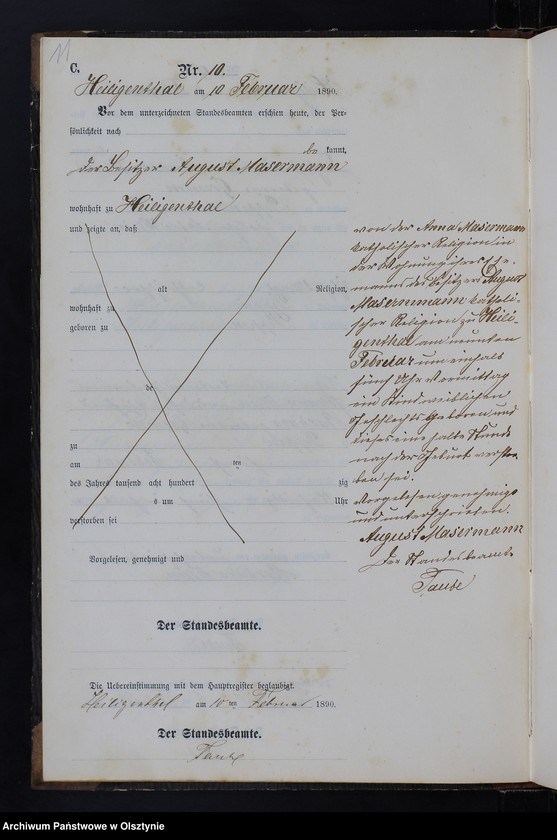 11
C.
Nr. 10.
Heiligenthal am 10 Februar 1890.
Vor dem unterzeichneten Standesbeamten erschien heute, der Per-
sönlichkeit nach
be kannt,
der Besitzer August Masermann
wohnhaft zu Heiligenthal
und zeigte an, daß
alt Religion,
wohnhaft zu
geboren zu
de
zu
am ten
des Jahres tausend acht hundert zig
s um Uhr
verstorben sei
Vorgelesen, genehmigt und
Der Standesbeamte.
Die Uebereinstimmung mit dem Hauptregister beglaubigt.
Heiligenthal am 10 ten Februar 1890.
Der Standesbeamte.
Taube
von der Anna Masermann
katholischer Religion in
der Wohnung ihres Ehe-
manns des Besitzers August
Masermann katholi-
scher Religion zu Heili-
genthal am neunten
Februar um ein halb
fünf Uhr Vormittag
ein Kind weiblichen
Geschlechts geboren und
dieses eine halbe Stunde
nach der Geburt verstor-
ben sei.
Vorgelesen genehmigt
und unterschrieben.
August Masermann
Der Standesbeamte
Taube
Archiwum Państwowe w Olsztynie